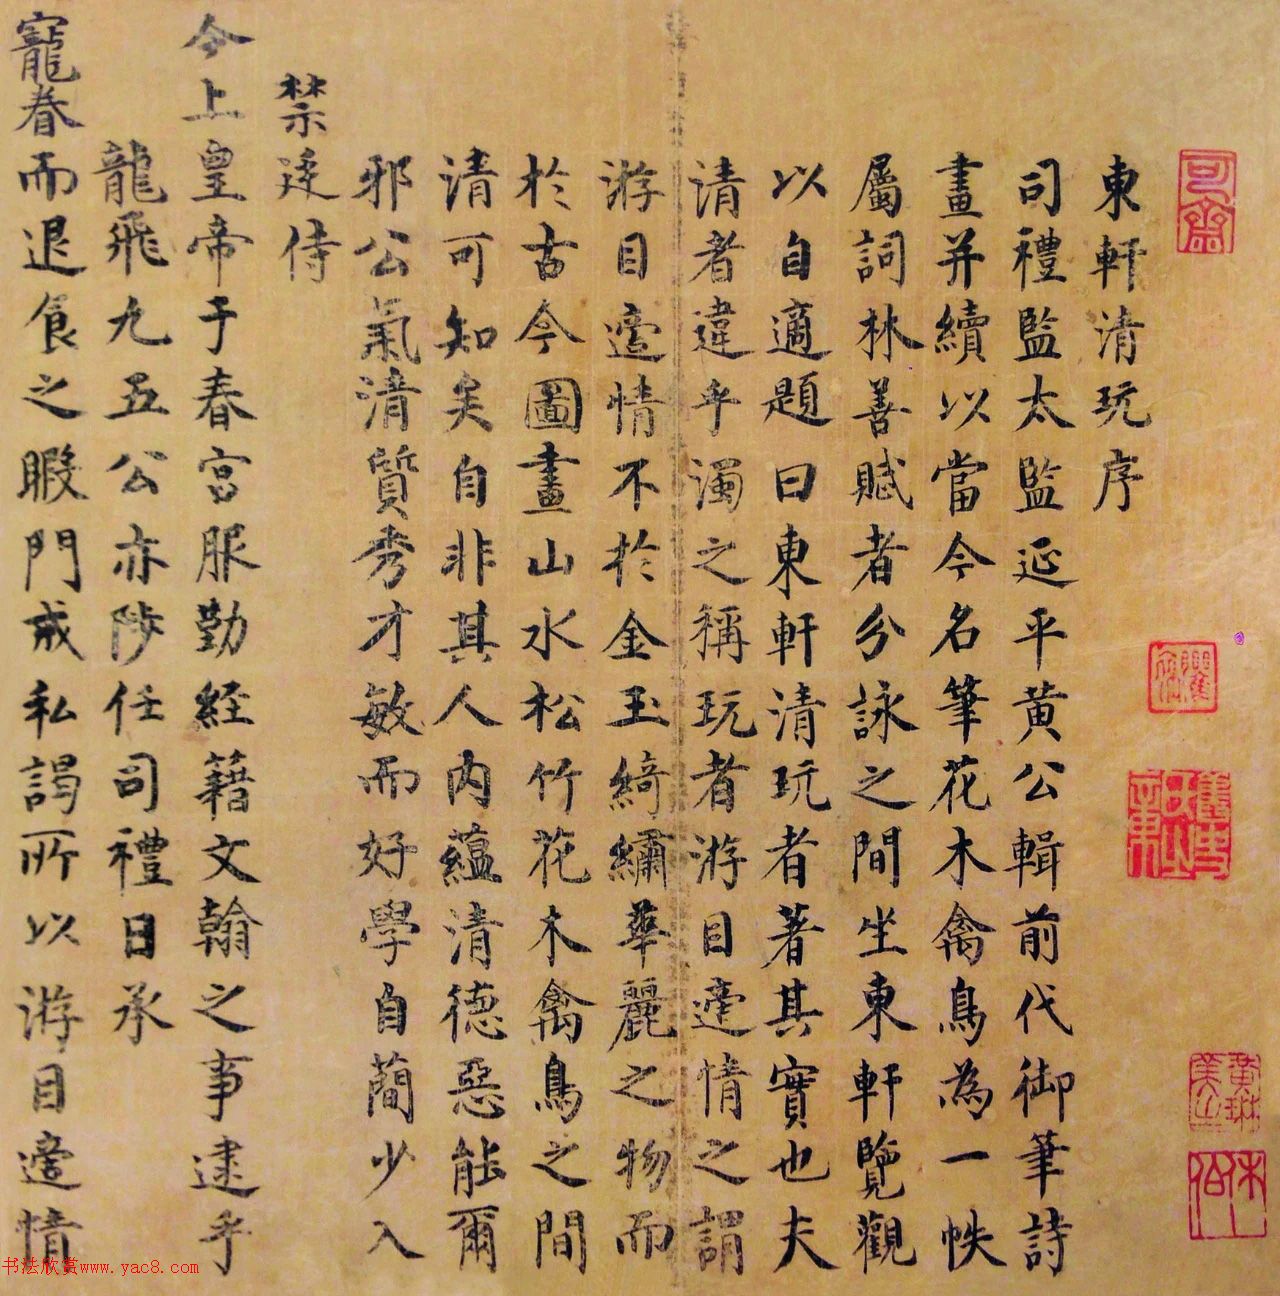 東軒清玩序
司禮監太監延平黃公輯前代御筆詩
畫并續以當今名筆花木禽鳥為一帙
屬詞林善賦者分詠之間坐東軒覽觀
以自適題曰東軒清玩者著其實也夫
清者違乎濁之稱玩者游目適情之謂
游目適情不於金玉綺繡華麗之物而
於古今圖畫山水松竹花木禽鳥之間
清可知矣自非其人內蘊清德惡能爾
邪公氣清質秀才敏而好學自蕳少入
禁逹侍
今上皇帝于春宮服勤經籍文翰之事逮乎
龍飛九五公亦陟任司禮日承
寵眷而退食之暇門戒私謁所以游目適情
可齋
黃琳美之
休伯
书法欣赏www.yac8.com